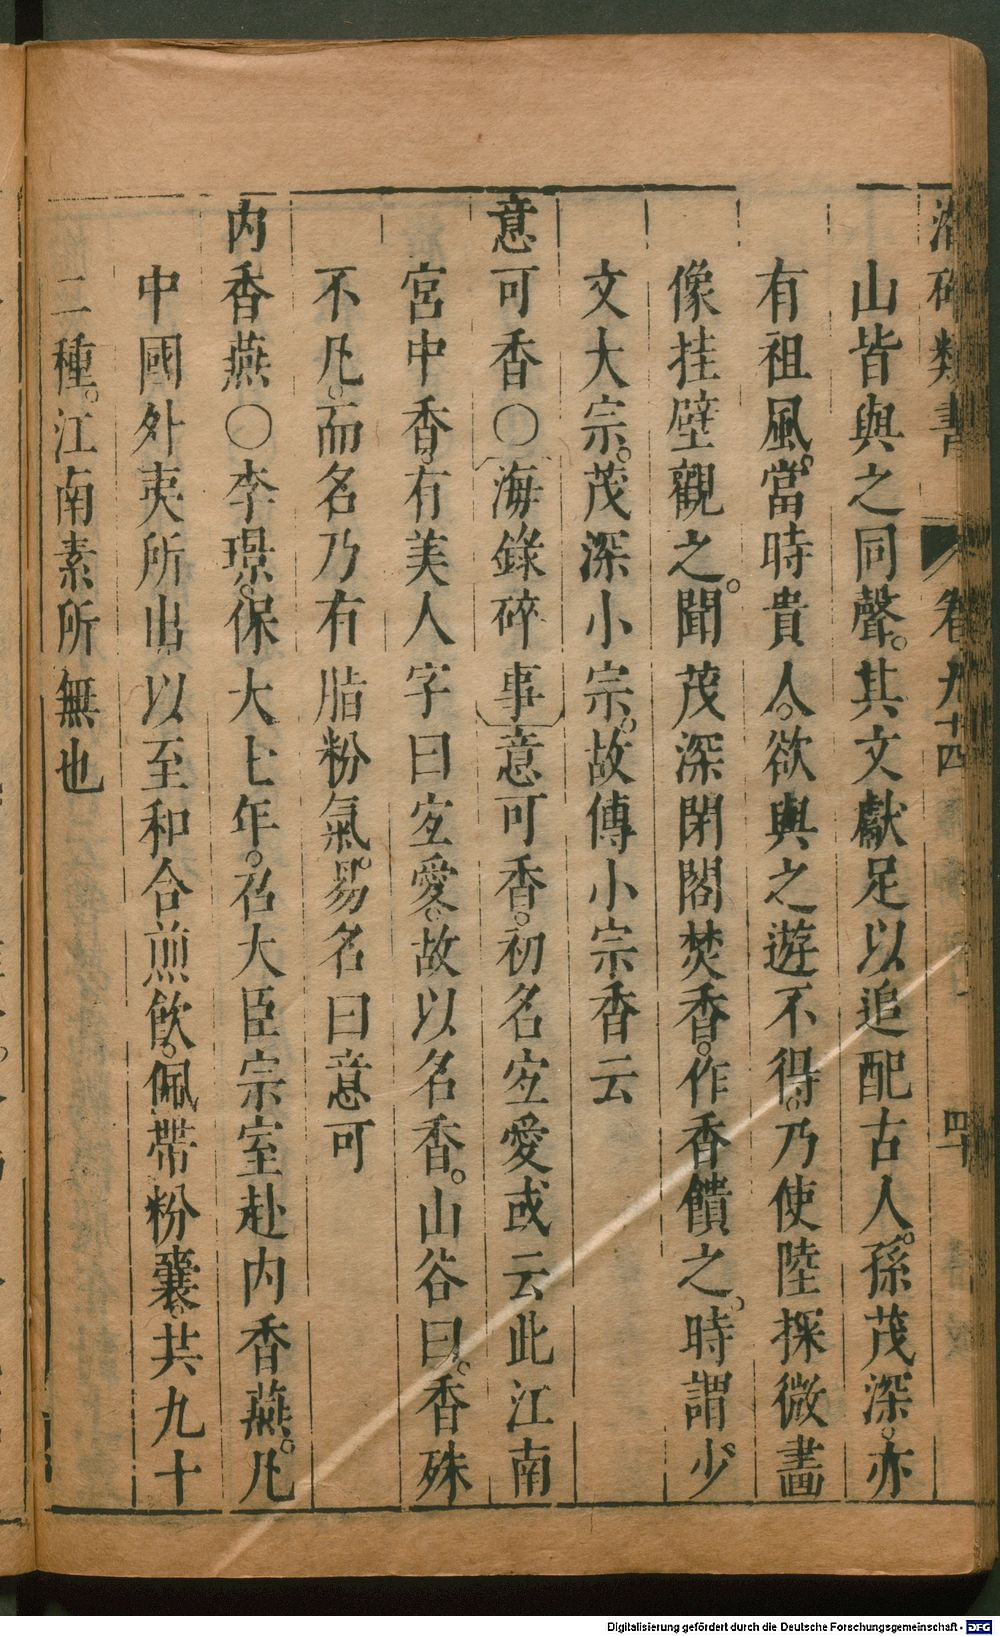 潛確類書 卷九十四 四十
山皆與之同聲。其文獻足以追配古人。孫茂深。亦
有祖風。當時貴人。欲與之遊不得。乃使陸探微畫
像挂壁觀之。聞茂深閉閣焚香。作香饋之。時謂少
文大宗。茂深小宗。故傳小宗香云
意可香〇海錄碎事意可香。初名宜愛或云此江南
宮中香。有美人字曰宜愛。故以名香。山谷曰。香殊
不凡。而名乃有脂粉氣。易名曰意可
内香燕〇李璟。保大七年。召大臣宗室赴内香燕。凡
中國外夷所出以至和合煎飲。佩帶粉囊。共九十
二種。江南素所無也
Digitalisierung gefördert durch die Deutsche Forschungsgemeinschaft - DFG